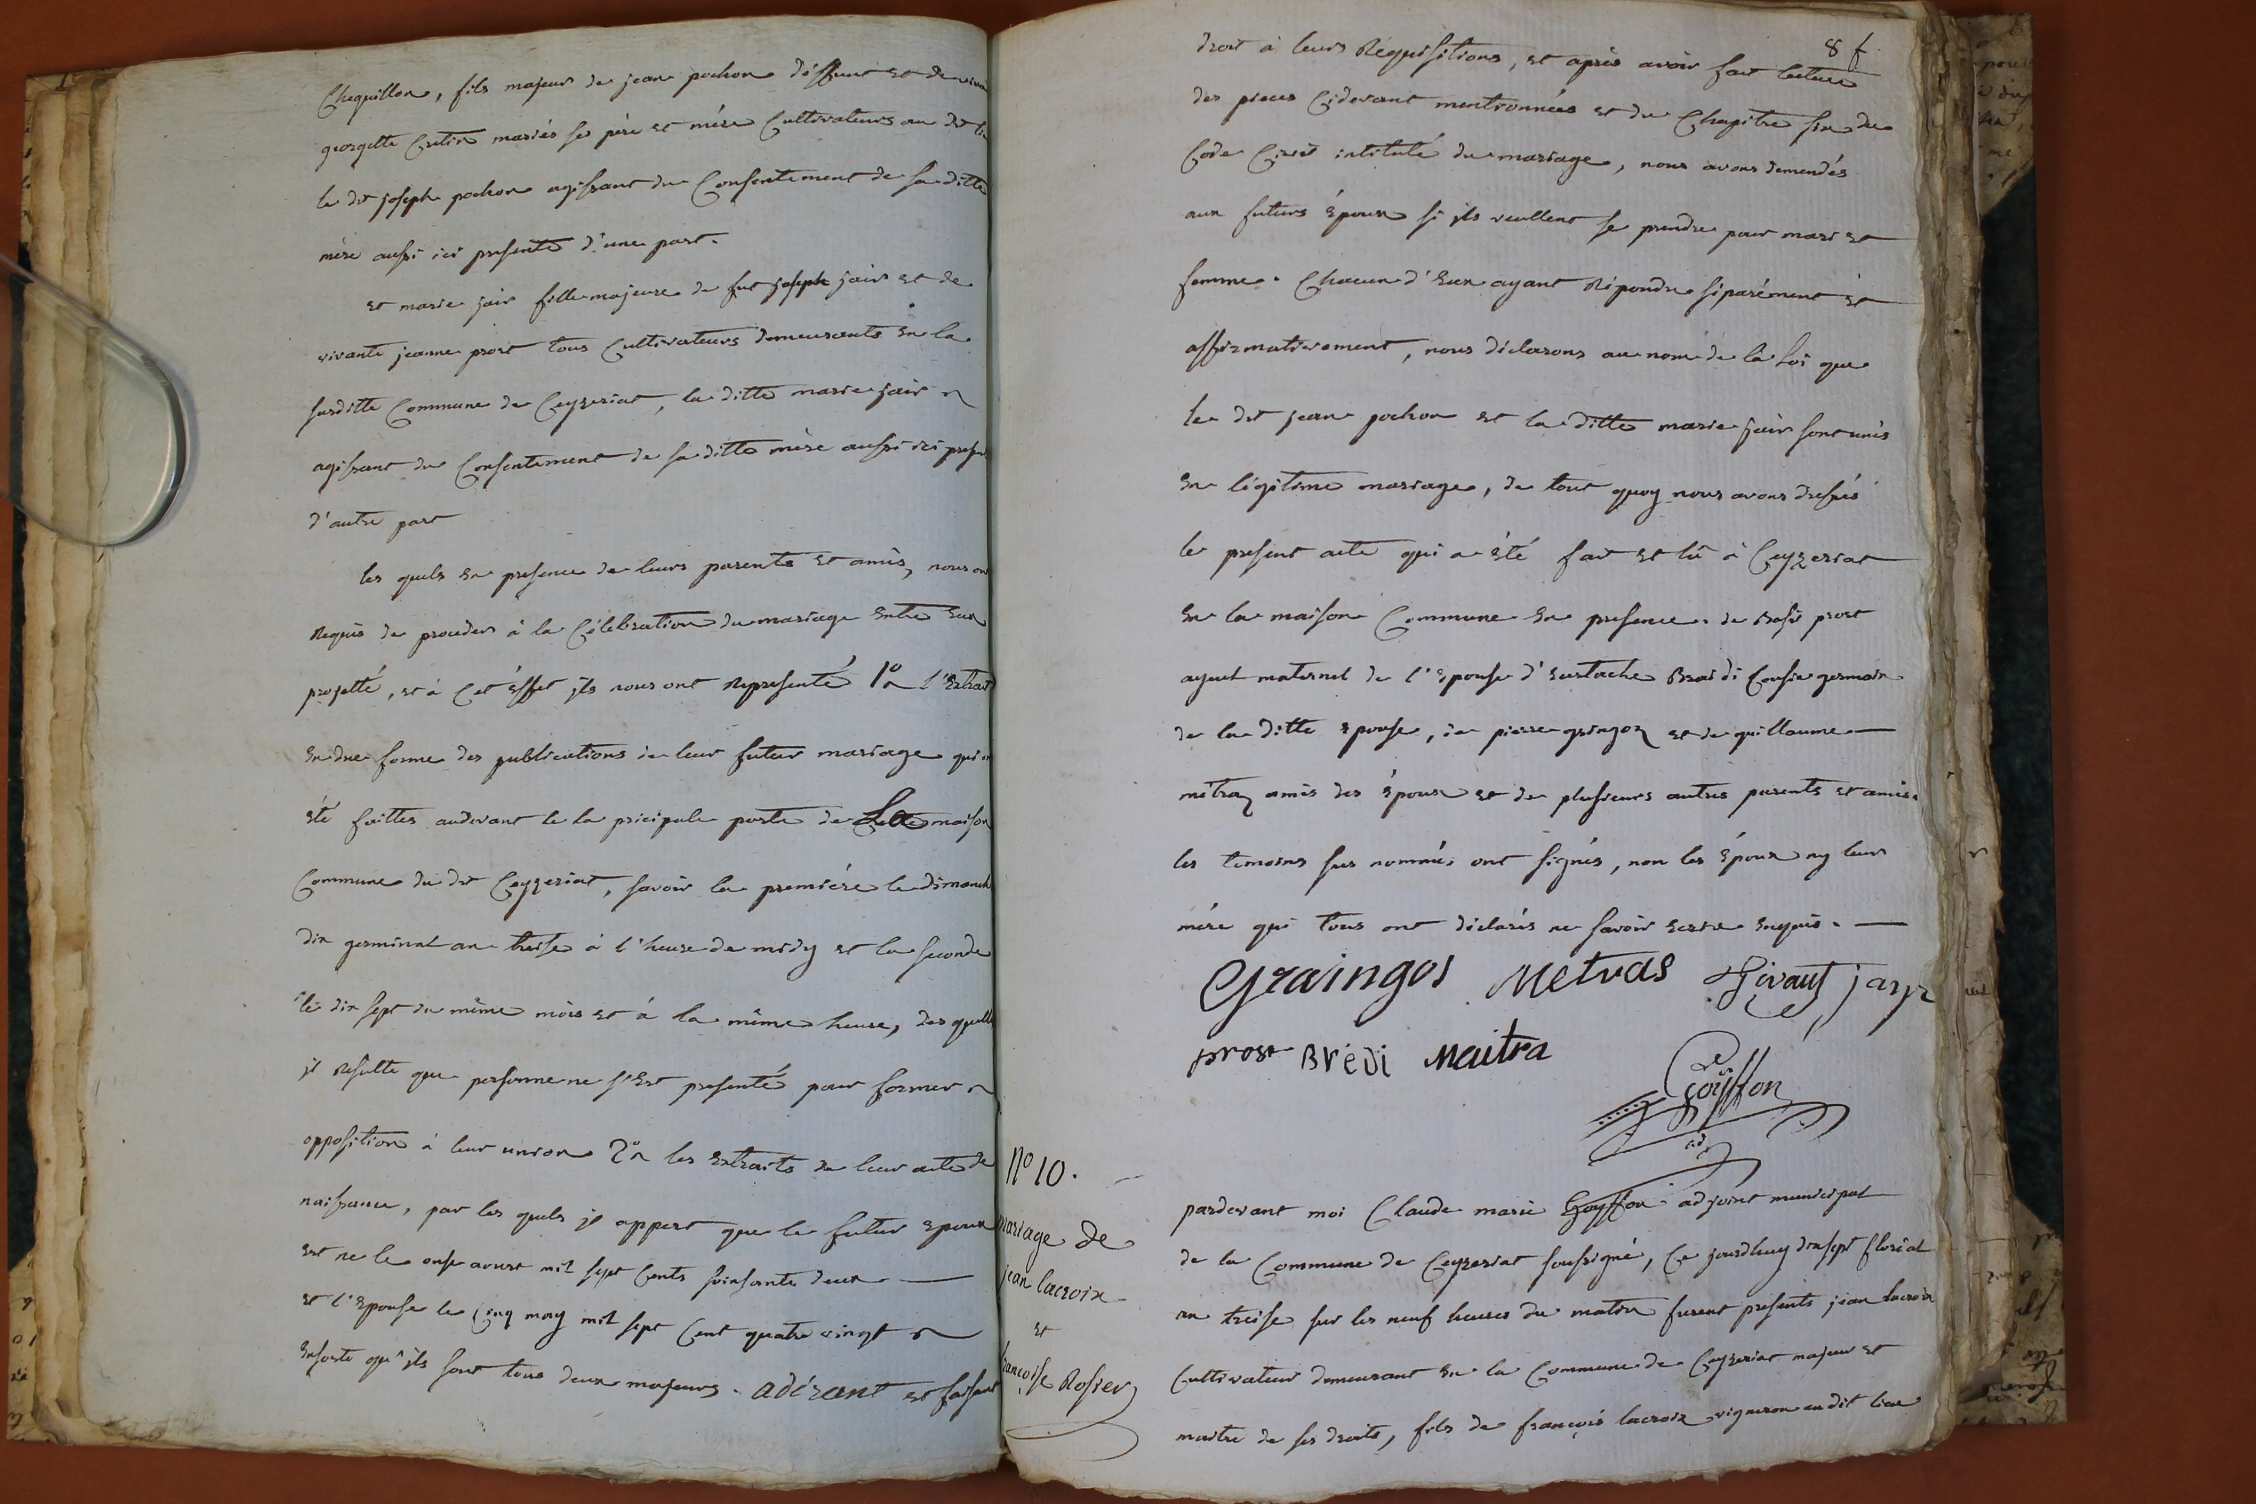 Chequillon, fils majeur de jean pochon déffunt et de
georgette Cretin mariés ses père et mère Cultivateurs au dit
le dit joseph pochon agissant du Consentement de sa ditte
mère aussi ici presente d'une part.
et marie jair fille majeure de fut joseph jair et de
vivante jeanne prost tous Cultivateurs demeurants en la
susditte Commune de Ceyzeriat, la ditte marie jair
agissant du Consentement de sa ditte mère aussi ici
d'autre part
les quels en presence de leurs parents et amis, nous
Requis de proceder à la Célébration du mariage entre eux
projetté, et à cet éffet ils nous ont Representé 1º l'Extrait
en due forme des publications de leur futur mariage qui
été faittes audevant de la pricipale porte de La maison
Commune du dit Ceyzeriat, savoir la premiére le dimanch
dix germinal an treise à l'heure de midy et la seconde
le dix sept du même mois et à la même heure, des quell
il Resulte que personne ne s'est presenté pour former
opposition à leur union 2º les Extraits de leur acte de
naissance, par les quels il appert que le futur epoux
est ne le onse aoust mil sept Cents soixante deux
et l'epouse le Cinq may mil sept Cent quatre vingt
ensorte qu'ils sont tous deux majeurs. adérant et faisant
8 f
droit à leurs Réquisitions, et après avoir fait lecture
des pieces Cidevant mentionnées et du Chapitre six du
Code Civil intitulé du mariage, nous avons demendés
aux futurs époux si ils veullent se prendre pour mari et
femme. Chacun d'eux ayant Répondu séparément et
affirmativement, nous déclarons au nom de la loi que
le dit jean pochon et la ditte marie jair sont unis
en légitime mariage, de tout quoy nous avons dressés
le present acte qui a été fait et lû à Ceyzeriat
en la maison Commune en presence de prost
ayeul maternel de l'epouse d'eustache Cousin germain
de la ditte epouse, de pierre gringoz et de guillaume
métraz amis des époux et de plusieurs autres parents et amis.
les temoins sus nommés ont signés, non les époux ny leur
mére qui tous ont déclarés ne savoir ecrire enquis.
Graingos Metras jayr
prost Brédi Maitra
Goÿffon
adj
Nº 10.
mariage de
jean lacroix
et
françoise Rosier
pardevant moi Claude marie Goyffon adjoint municipal
de la Commune de Ceyzeriat soussigné, Ce jourdhuy dixsept floréal
an treise sur les neuf heures du matin furent présents jean lacroix
Cultivateur demeurant en la Commune de Ceyzeriat majeur et
maitre de ses droits, fils de françois lacroix vigneron au dit lieu